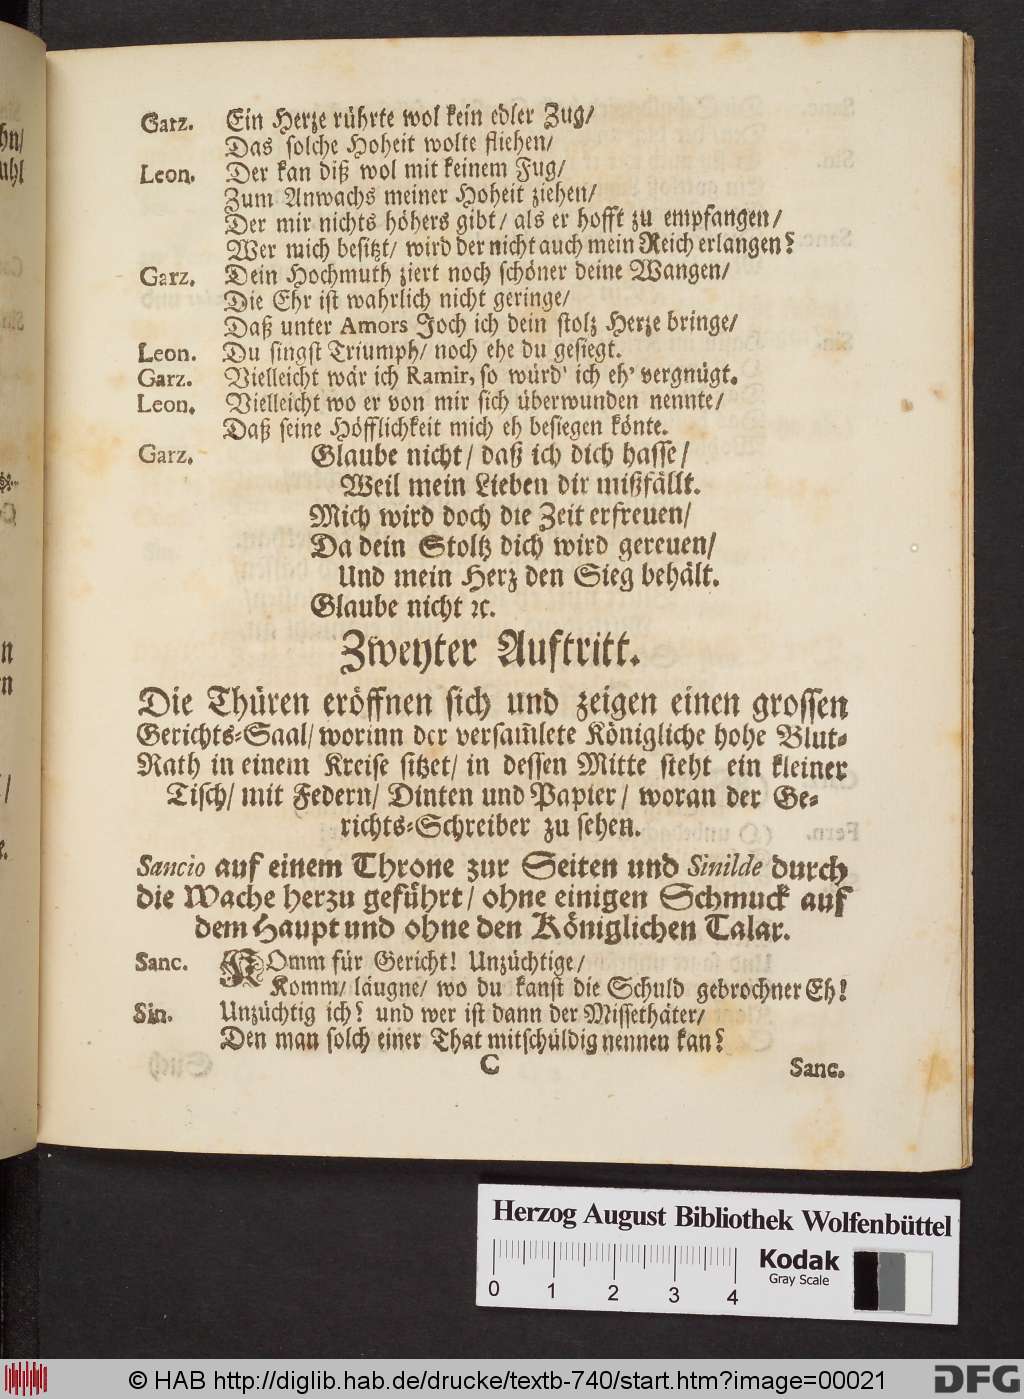 Garz. Ein Herze rührte wol kein edler Zug/
Das solche Hoheit wolte fliehen/
Leon. Der kan diß wol mit keinem Fug/
Zum Anwachs meiner Hoheit ziehen/
Der mir nichts höhers gibt/ als er hofft zu empfangen/
Wer mich besitzt/ wird der nicht auch mein Reich erlangen?
Garz. Dein Hochmuth ziert noch schöner deine Wangen/
Die Ehr ist wahrlich nicht geringe/
Daß unter Amors Joch ich dein stolz Herze bringe/
Leon. Du singst Triumph/ noch ehe du gesiegt.
Garz. Vielleicht wär ich Ramir, so würd' ich eh' vergnügt.
Leon. Vielleicht wo er von mir sich überwunden nennte/
Daß seine Höfflichkeit mich eh besiegen könte.
Garz. Glaube nicht/ daß ich dich hasse/
Weil mein Lieben dir mißfällt.
Mich wird doch die Zeit erfreuen/
Da dein Stoltz dich wird gereuen/
Und mein Herz den Sieg behält.
Glaube nicht ꝛc.
Zweyter Auftritt.
Die Thüren eröffnen sich und zeigen einen grossen
Gerichts-Saal/ worinn der versam̃lete Königliche hohe Blut-
Rath in einem Kreise sitzet/ in dessen Mitte steht ein kleiner
Tisch/ mit Federn/ Dinten und Papier/ woran der Ge-
richts-Schreiber zu sehen.
Sancio auf einem Throne zur Seiten und Sinilde durch
die Wache herzu geführt/ ohne einigen Schmuck auf
dem Haupt und ohne den Königlichen Talar.
Sanc. KOmm für Gericht! Unzüchtige/
Komm/ läugne/ wo du kanst die Schuld gebrochner Eh!
Sin. Unzüchtig ich? und wer ist dann der Missethäter/
Den man solch einer That mitschüldig nennen kan?
C Sanc.
Herzog August Bibliothek Wolfenbüttel
Kodak
Gray Scale
0 1 2 3 4
© HAB http://diglib.hab.de/drucke/textb-740/start.htm?image=00021
DFG